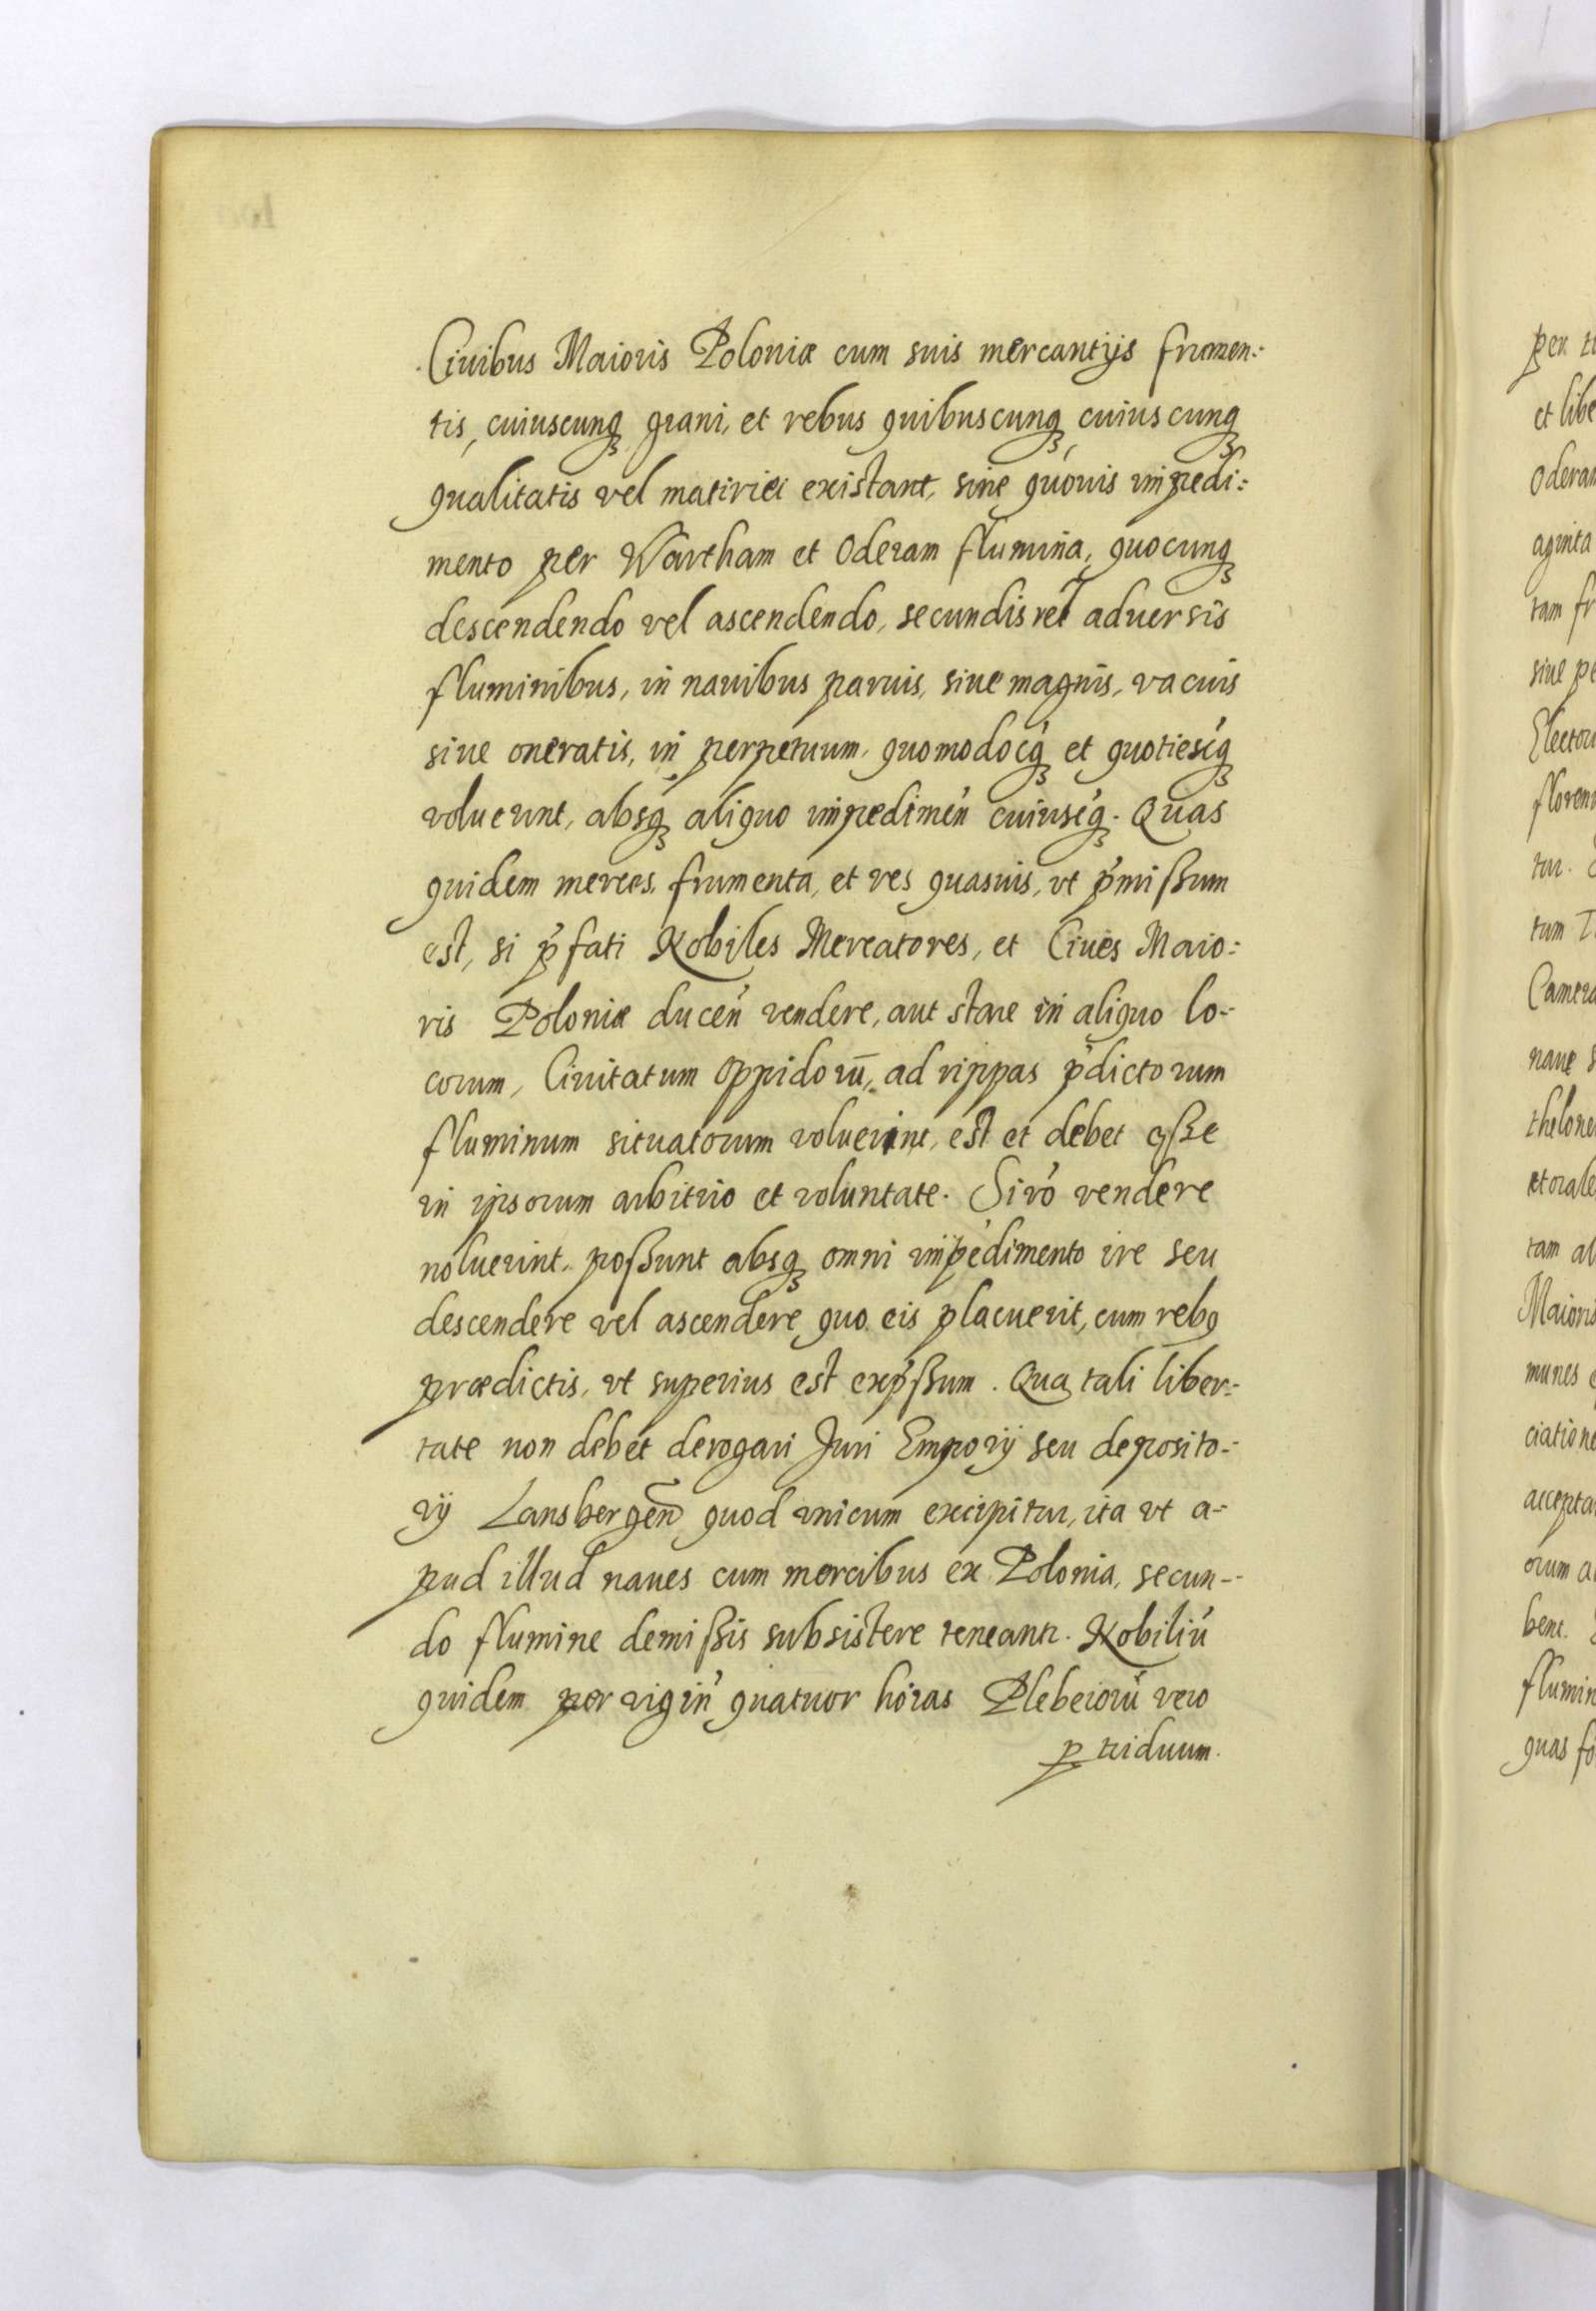 Ciuibus Maioris Poloniæ cum suis mercantijs frumen:
tis, cuiuscunqꝫ grani, et rebus quibuscunqꝫ, cuiuscunqꝫ
qualitatis vel matiriei existant, sine quouis impedi:
mento per Wartham et Oderam flumina, quocunqꝫ
descendendo vel ascendendo, secundis vel aduersis
fluminibus, in nauibus paruis, siue magnis, vacuis
siue oneratis, in perpetuum, quomodocq́ꝫ et quotiescq́ꝫ
voluerint, absqꝫ aliquo impedimeń cuiuscq́ꝫ. Quas
quidem merces, frumenta, et res quasuis, vt p̕mißum
est, si p̕fati Nobiles Mercatores, et Ciues Maio:
ris Poloniæ duceń vendere, aut stare in aliquo lo-
corum, Ciuitatum Oppidorū, ad rippas p̕dictorum
fluminum situatorum voluerint, est et debet eße
in ipsorum arbitrio et voluntate. Si ró vendere
noluerint, poßunt absqꝫ omni impedimento ire seu
descendere vel ascendere quo eis placuerit, cum rebꝯ
prædictis, vt superius est exp̕ßum. Qua tali liber:
tate non debet derogari Juri Emporij seu deposito-
rij Lansbergeñ quod vnicum excipitur, ita vt a-
pud illud naues cum mercibus ex Polonia, secun-
do flumine demißis subsistere teneantr. Nobiliú
quidem per vigiń quatuor horas Plebeiorú vero
ꝑ triduum.
per
et libe
Oderam
aginta
tam fr
siue pe
Elector
floren
tur.
tum
Camera
naue
thelone
tam al
Maioris
munes
ciatione
accepta
orum a
bent.
flumin
quas fo